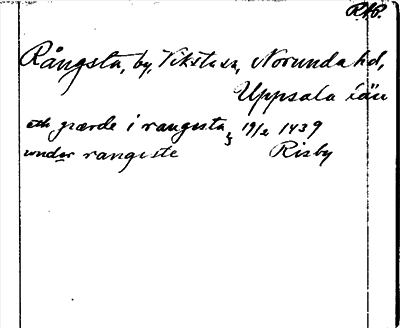 R.P.
Rångsta, by, Vikstasn, Norunda hd,
Uppsala län
eth giærde i rangista 19/2 1439
under rangiste Risby